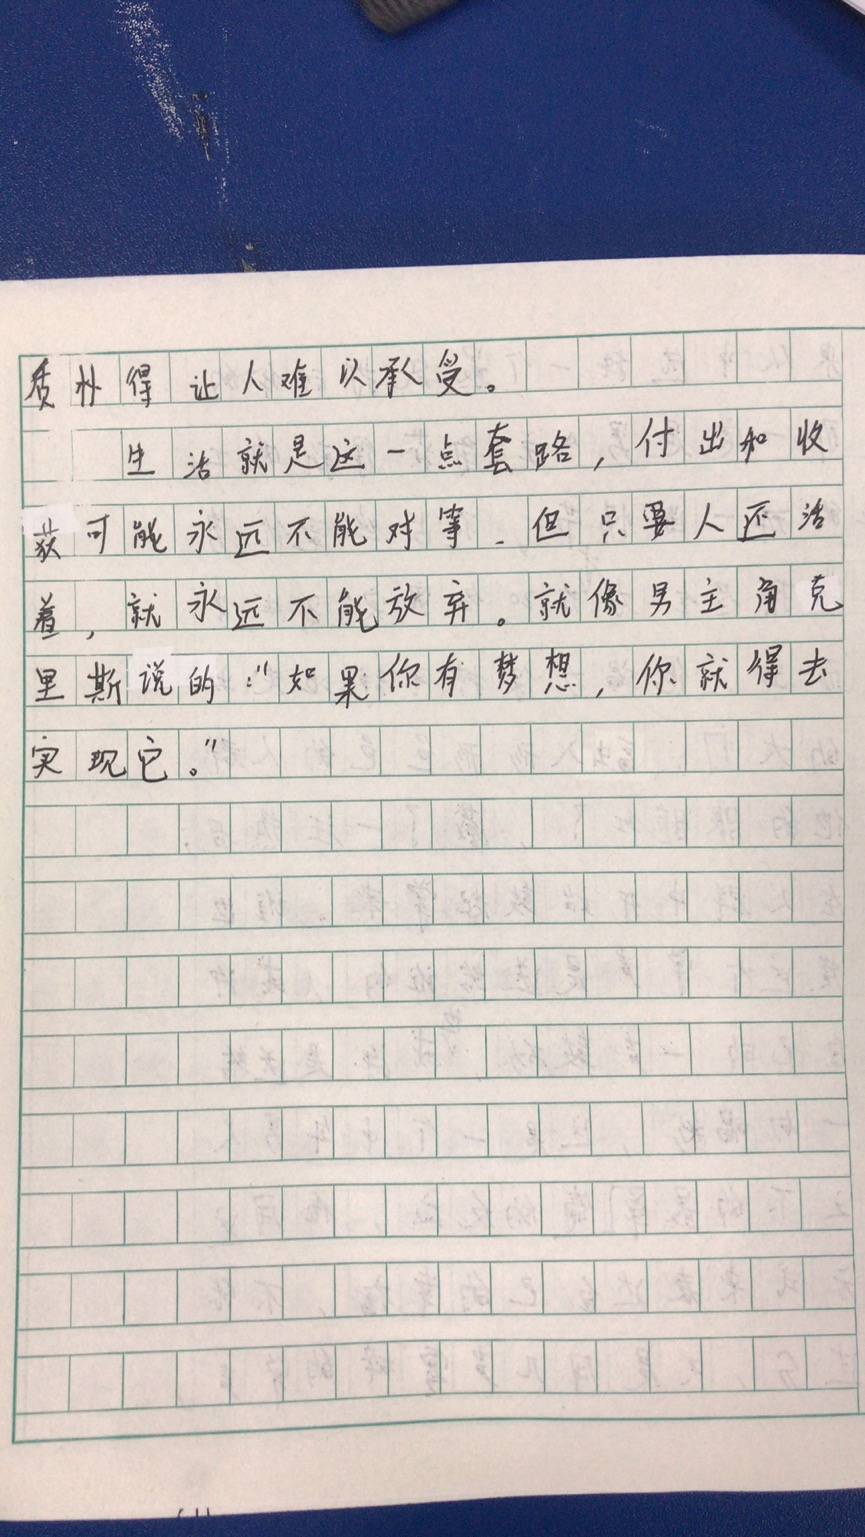 质朴得让人难以承受。
生活就是这一点套路,付出和收
获可能永远不能对等.但只要人还活
着,就永远不能放弃。就像男主角克
里斯说的:"如果你有梦想,你就得去
实现它。"